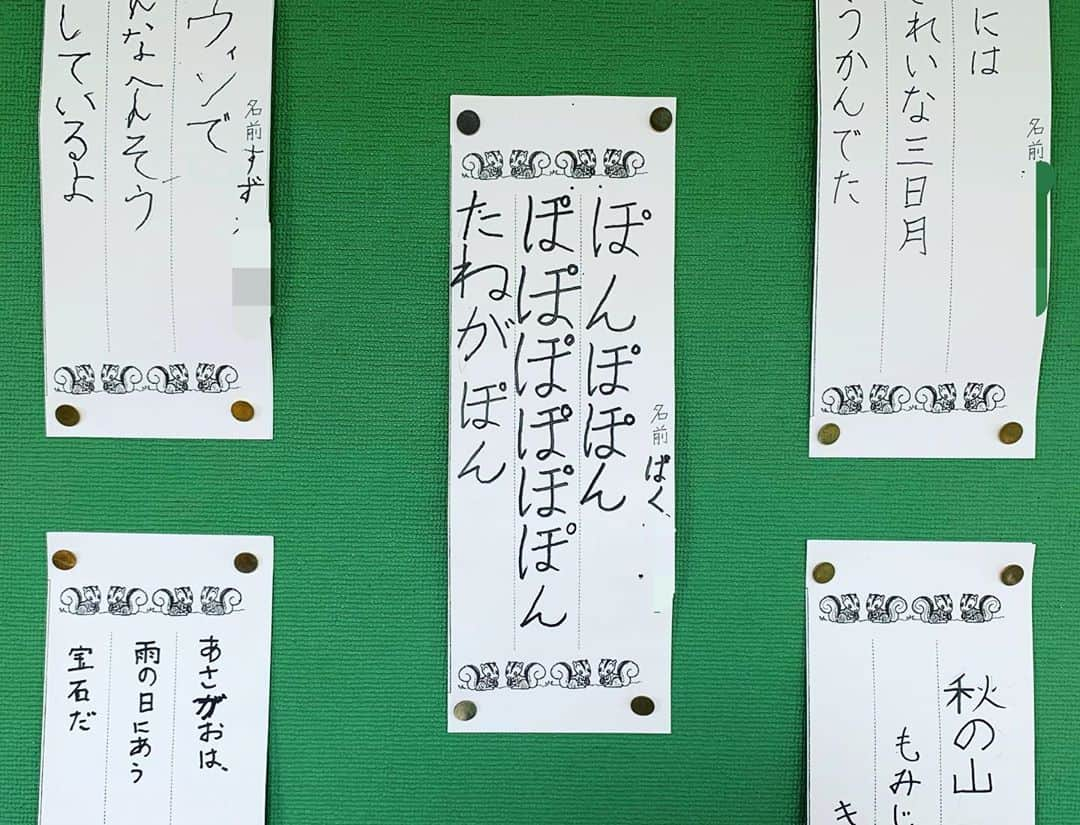 名前
には
れいな三日月
うかんでた
名前 ぱく
ぽんぽぽん
ぽぽぽぽぽぽん
たねがぽん
名前 すず
ウィンで
んなへんそう
しているよ
秋の山
もみじ
き
あさがおは、
雨の日にあう
宝石だ